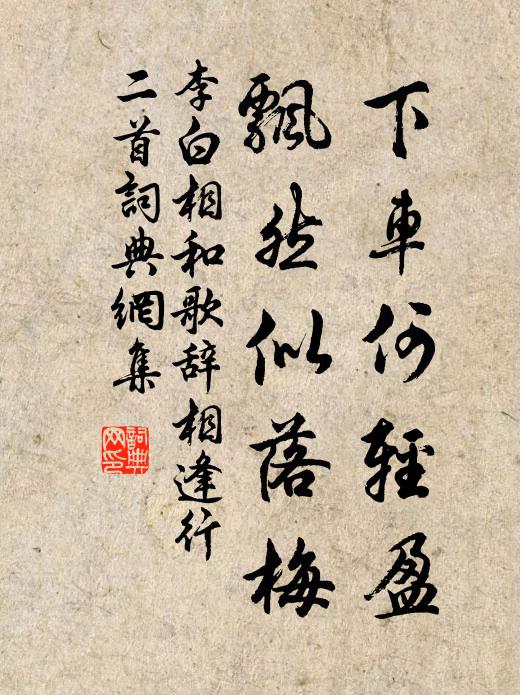 下車何輕盈
飄然似落梅
李白相和歌辞相逢行
二首詞典網集
詞典網印